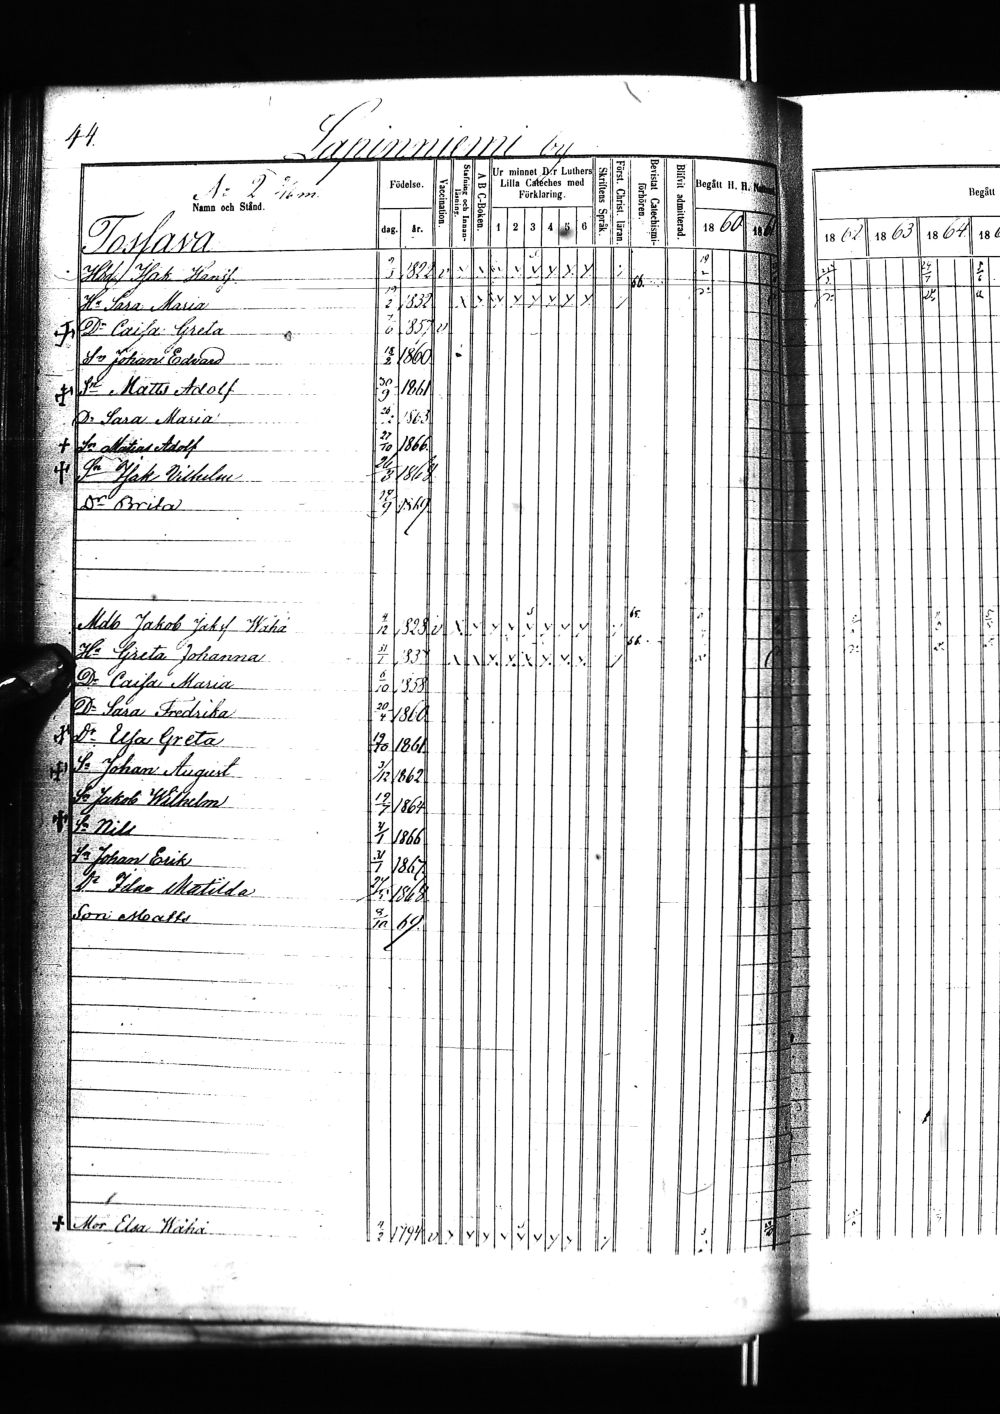 44.
Lapinniemi by
No 2 5/16 m.
Namn och Stånd.
Födelse.
dag. år.
Vaccination.
Stafning och Innanläsning.
A B C-Boken.
Ur minnet D:r Luthers Lilla Cateches med Förklaring.
1 2 3 4 5 6
Skriftens Språk.
Först. Christ. läran.
Bevistat Catechismiförhören.
Blifvit admitterad.
Begått H. H.
1860
Begått
1862 1863 1864
Tossava
Isak Hansf. 1822
Hu Sara Maria 1832
Dr Caisa Greta 1857
Sn Johan Edvard 18/2 1860
Sn Matts Adolf 30/9 1861
Dr Sara Maria 1863
Sn Matias Adolf 27/10 1866.
Sn Isak Vilhelm 26/3 1868
Dr Brita 1869
Mdb Jakob Jaksf Wähä 1828
Hu Greta Johanna 31/1 1837
Dr Caisa Maria 6/10 1858
Dr Sara Fredrika 20/4 1860
Dr Elsa Greta 19/10 1861
Sn Johan August 3/12 1862
Sn Jakob Wilhelm 19/7 1864
Sn Nils 1866
Sn Johan Erik 31/1 1867.
Dr Ida Matilda 1868
Son Matts 69
Mor Elsa Wähä 1794